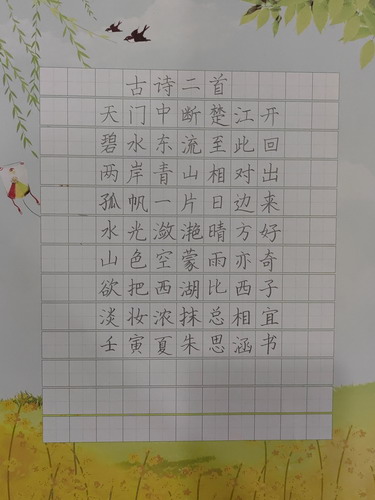 古诗二首
天门中断楚江开
碧水东流至此回
两岸青山相对出
孤帆一片日边来
水光潋滟晴方好
山色空蒙雨亦奇
欲把西湖比西子
淡妆浓抹总相宜
壬寅夏朱思涵书